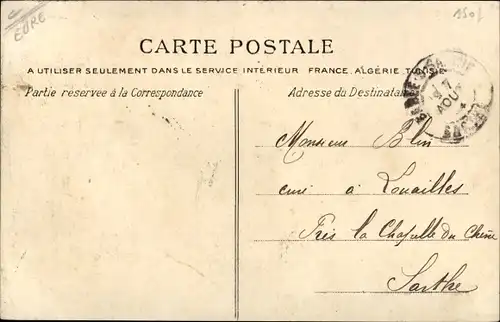 EURE
150f
CARTE POSTALE
A UTILISER SEULEMENT DANS LE SERVICE INTÉRIEUR FRANCE, ALGÉRIE, TUNISIE
Partie réservée à la Correspondance
Adresse du Destinataire
7
AOUT
SARTHE
Monsieur Blin
curé à Louailles
Près la Chapelle du Chêne
Sarthe